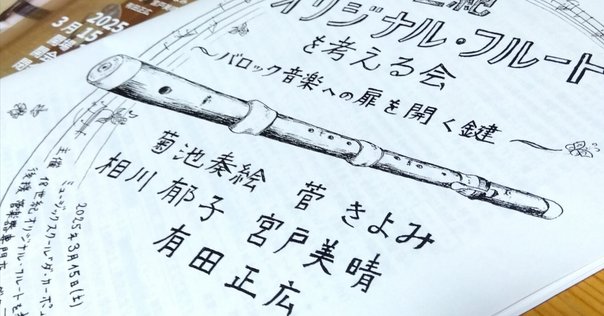 オリジナル・フルート
を考える会
～バロック音楽への扉を開く鍵～
菊池奏絵 菅きよみ
相川郁子 宮戸美晴
有田正広
2025年3月15日(土)
ミュージックスクール・ダ・カーポ
主催 18世紀オリジナル・フルートを
後援
2025
3月15